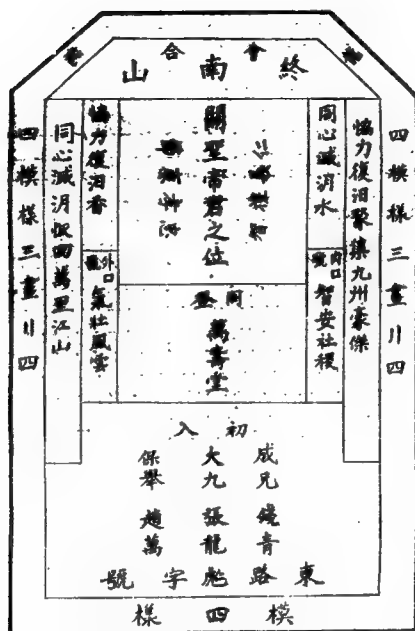 會合
終南山
四模樣三畫川四
恊力復汨聚集九州豪傑
同心滅⿰氵月水
內口號
智安社稷
關聖帝君之位
萬壽堂
恊力復汨香
外口號
氣壯風雲
同心滅⿰氵月恢四萬里江山
四模樣三畫川四
初入
成兄 錢青
大九 張龍
保舉 趙萬
東路彪字號
模四樣